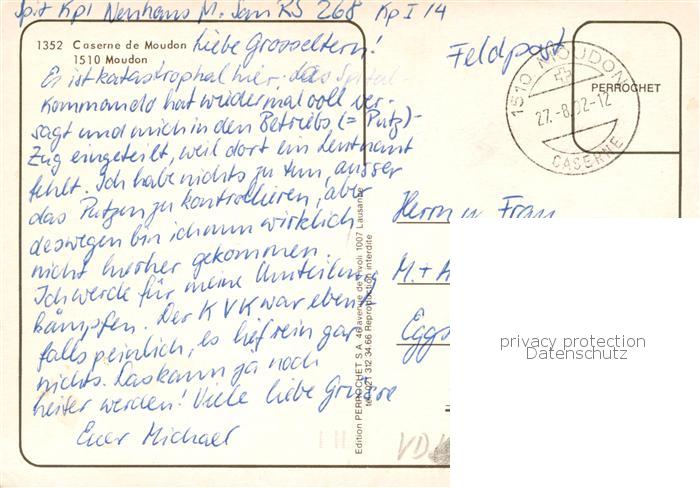 Spit Kpl Neuhaus M. San RS 268 Kp I / 4
1352 Caserne de Moudon
1510 Moudon
Liebe Grosseltern!
Es ist katastrophal hier, das Spital-
kommando hat wiedermal voll ver-
sagt und mich in den Betriebs (= Putz)-
Zug eingeteilt, weil dort ein Leutnant
fehlt. Ich habe nichts zu tun, ausser
das Putzen zu kontrollieren, aber
deswegen bin ich nun wirklich
nicht hierher gekommen.
Ich werde für meine Umteilung
kämpfen. Der KVK war eben-
falls peinlich, es lief rein gar
nichts. Das kann ja noch
heiter werden! Viele liebe Grüsse
Euer Michael
Edition PERROCHET S.A. 46 avenue de Rivoli 1007 Lausanne
tél 021 312 34 66 Reproduction interdite
Feldpost
1510 MOUDON
27.-8.92-12
CASERNE
PERROCHET
Herrn u. Frau
M. + A
Eggs
privacy protection
Datenschutz
VDK